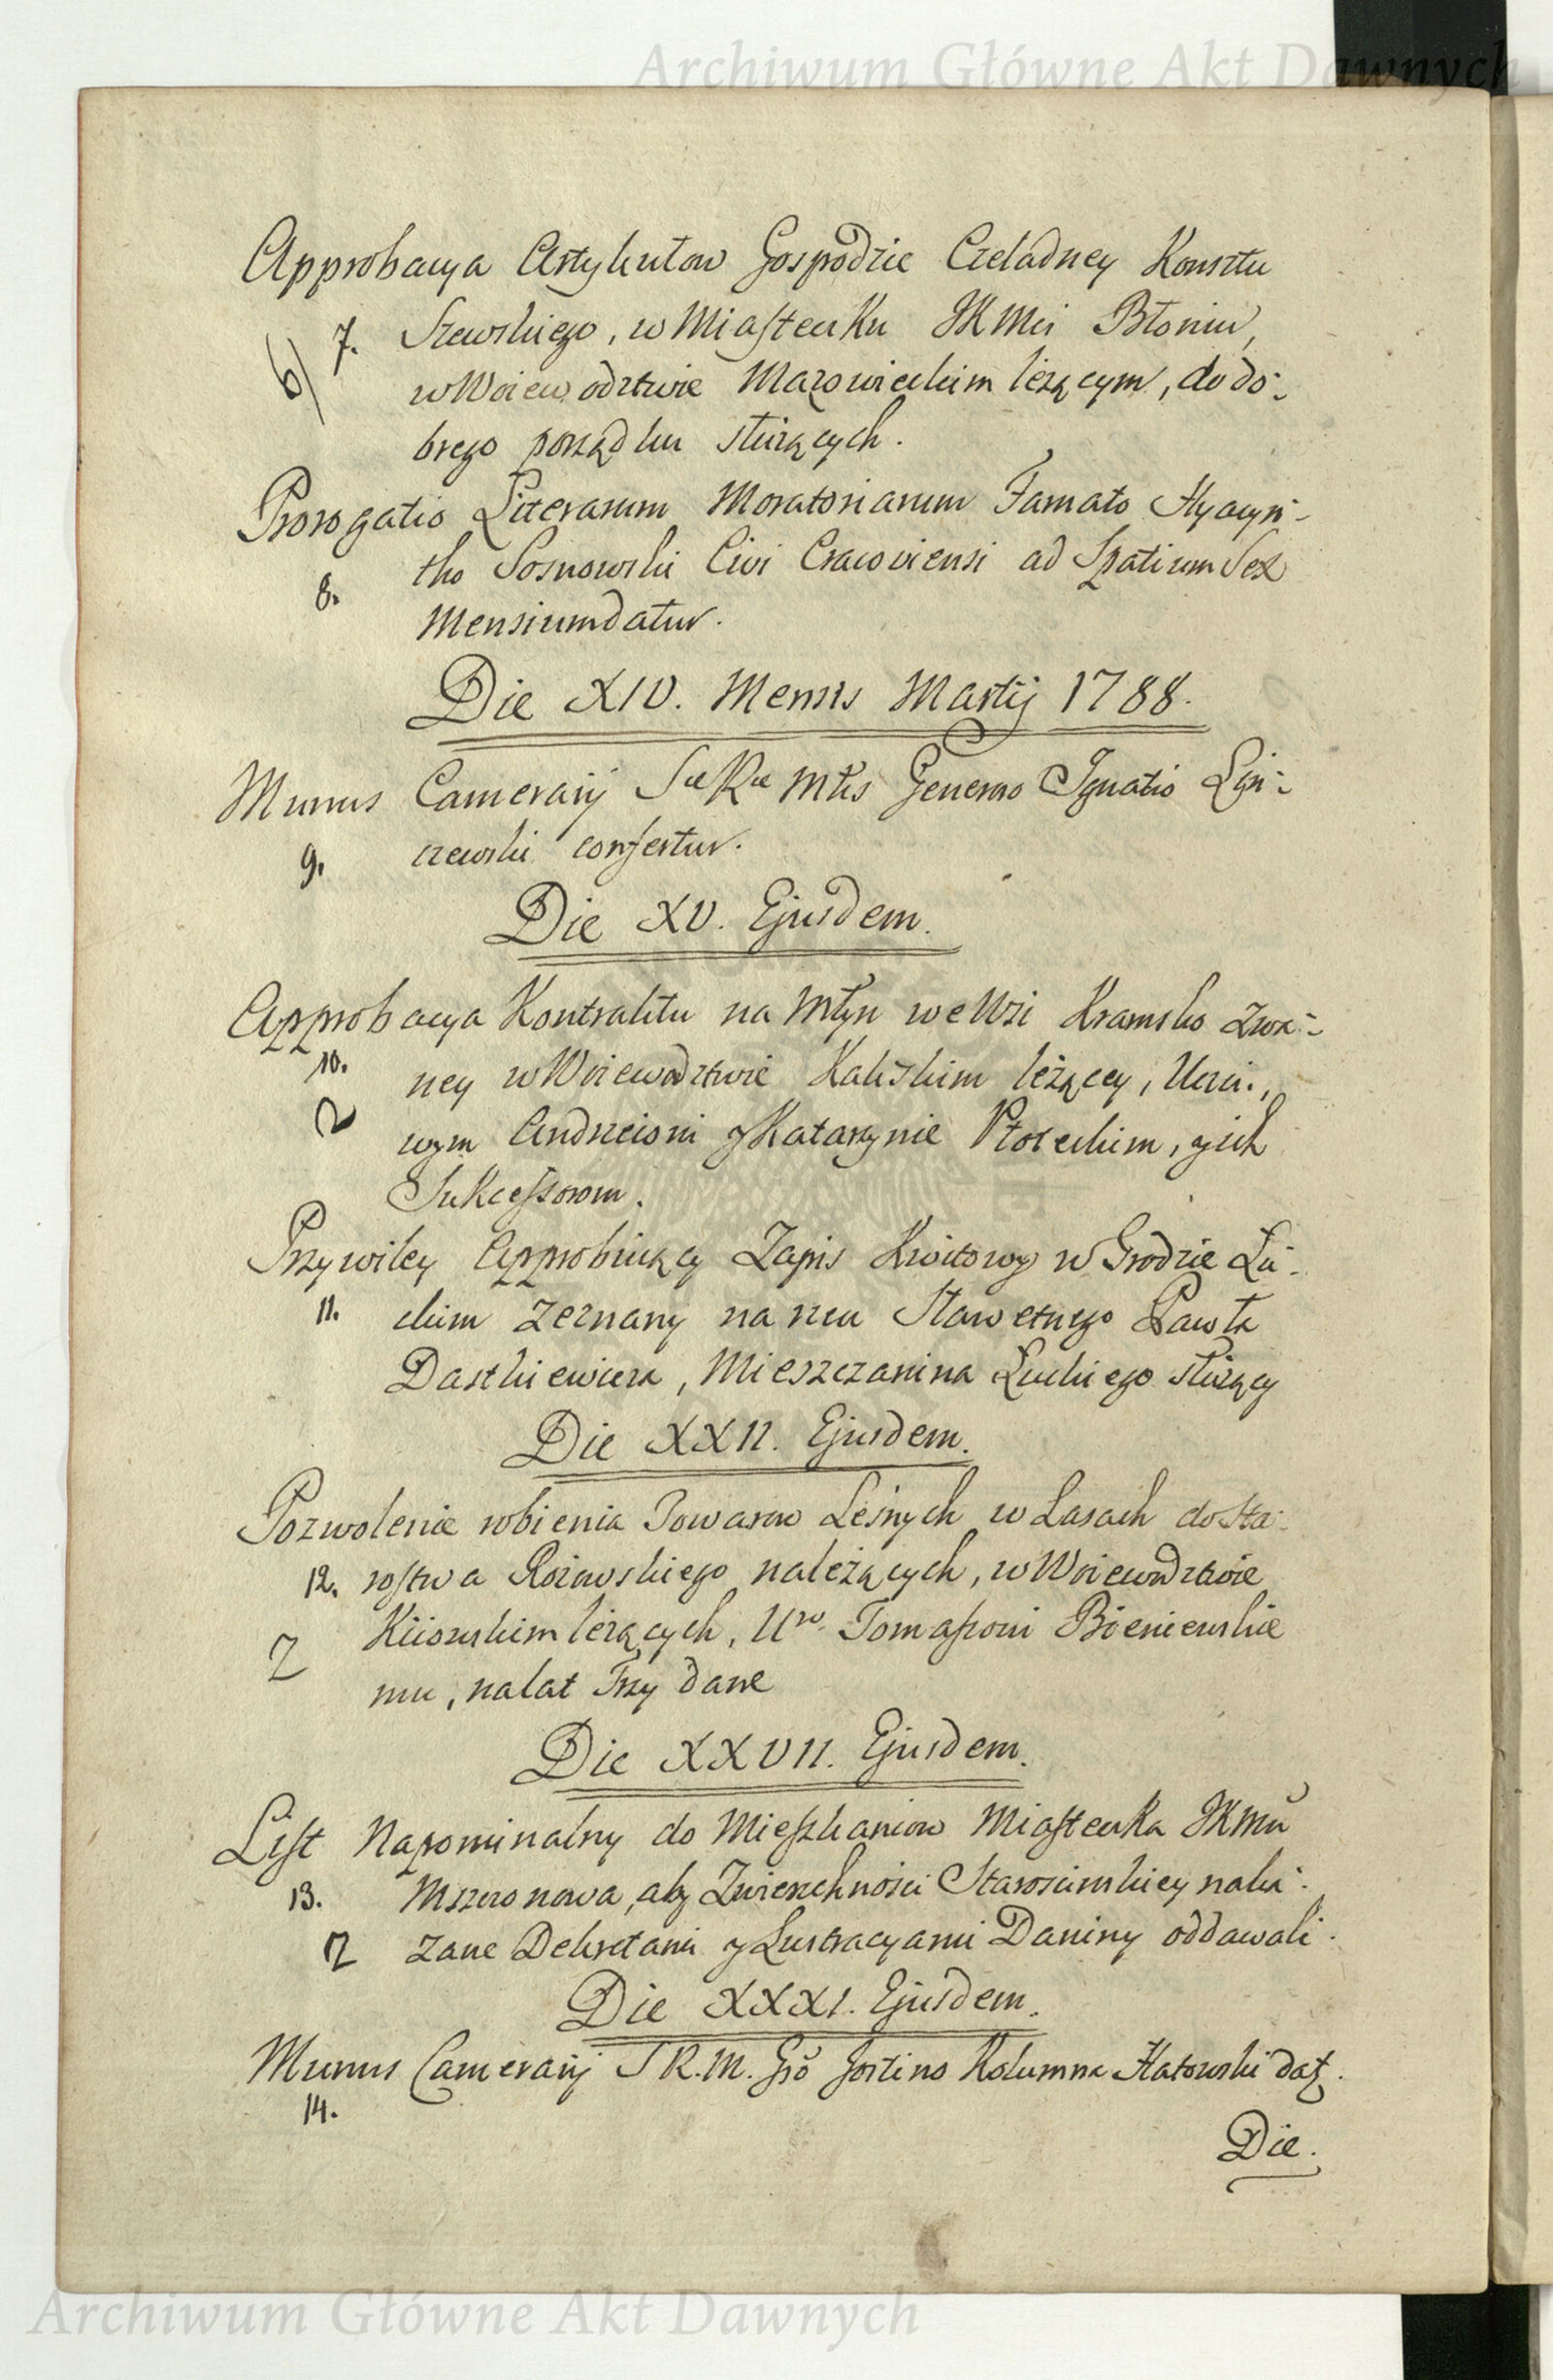 Archiwum Główne Akt Dawnych
Approbacya Artykułow Gospodzie Czeladney Konsztu
6/ 7. Szewskiego, w Miasteczku JKMci Błoniu,
w Woiewodztwie Mazowieckim leżącym, do do-
brego porządku służących.
Prorogatio Literarum Moratoriarum Famato Hyacyn-
8. tho Sosnowski Civi Cracoviensi ad Spatium Sex
Mensium datur.
Die XIV. Mensis Martij 1788.
Munus Camerarij Sae Rae Mtis Generoso Ignatio
9. czewski confertur.
Die XV. Ejusdem.
Approbacya Kontraktu na Młyn we Wsi Kramsko zwa-
10. ney w Woiewodztwie Kaliskim leżącey, Ucci-
2 wym Andrzeiowi y Katarzynie Płoceckim, y ich
Sukcessorom.
Przywiley Approbuiący Zapis Kwitowy w Grodzie Łu-
11. ckim zeznany na rzecz Sławetnego Pawła
Daszkiewicza, Mieszczanina Łuckiego służący
Die XXII. Ejusdem.
Pozwolenie robienia Towarow Leśnych w Lasach do Sta-
12. rostwa należących, w Woiewodztwie
2 Kiiowskim leżących, Uro. Tomaszowi Bieniewskie
mu, na lat Trzy dane
Die XXVII. Ejusdem.
List Napominalny do Mieszkancow Miasteczka JKMci
13. Mszczonowa, aby Zwierzchności Starościnskiey naka-
2 zane Dekretami y Lustracyami Daniny oddawali.
Die XXXI. Ejusdem.
Munus Camerarij S R. M. Gso Kolumna datʒ.
14.
Die.
Archiwum Główne Akt Dawnych